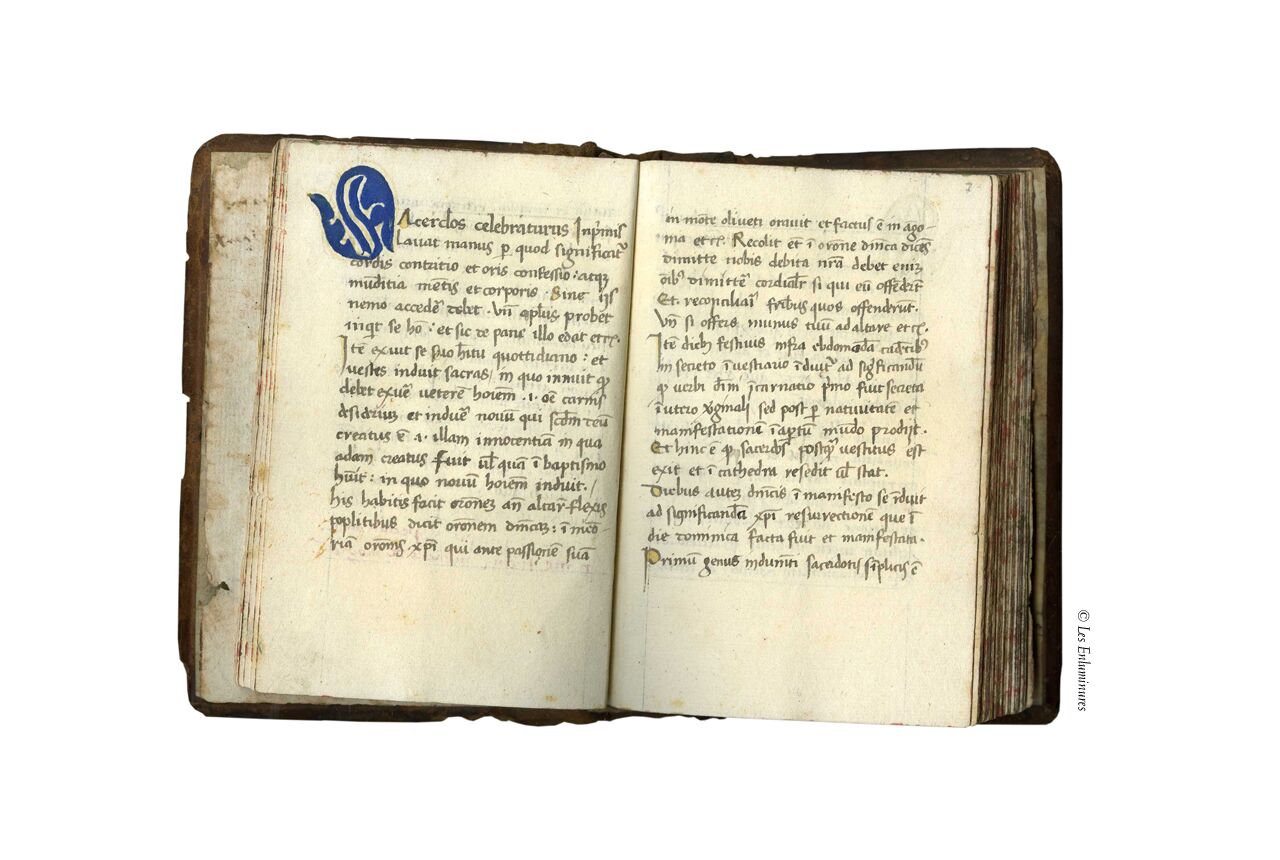 Sacerdos celebraturus Inpͥmis
Lauat manus ꝑ quod significat᷑
cordis contritio et oris confessio : atqꝫ
mūditia mētis et corporis . Sine ijs
nemo accedē debet . Vn̄ apl̄us probet
inqͥt se hō : et sic de pane illo edat etcͬ.
Itē exuit se suo hītu quottidiano : et
vestes induit sacras / in quo innuit ꝙ
debet exuē veterē hoīem .i. oē carnis
desideriuꝫ et induē nouū qui scd̄m deū
creatus ē .i. illam innocentiā in qua
adam creatus fuit ul̄ quā ī baptismo
hūit : in quo nouū hoīem induit . /
his habitis facit orōnez añ altar̄ flexis
poplitibus dicit orōnem dn̄icaꝫ : ī meō-
riā orōnis xp̄i qui ante passiōnē suā
2
in mōte oliueti orauit et factus ē in ago-
nia etcͬ. Recolit et ī orōne dn̄ica dicēs
dimitte nobis debita nr̄a debet eniꝫ
oībꝰ dimittē cordialr̄ si qui eū offederīt
Et reconciliaī fr̄ibus quos offenderūt.
Vn̄ si offeris munus tuū ad altare etcͬ.
Itē diebꝫ festiuis infra ebdomodā cadētibꝰ
In secreto ī vestiario īduit᷑ ad significandū
ꝙ verbi diuī īcarnatio pͥmo fuit secreta
ī utero vͥginali sed post ꝑ natiuitatē et
manifestationē ī aꝑtū mūdo prodijt.
Et hinc ē ꝙ sacerdos postqꝫ vestitus est
exit et ī cathedra resedit ul̄ stat.
Diebus auteꝫ dn̄icis ī manifesto se īduit
ad significandā xp̄i resurrectionē que ī
die dominica facta fuit et manifestata.
Primū genus indumēti sacerdotis sīplicis ē
© Les Enluminures